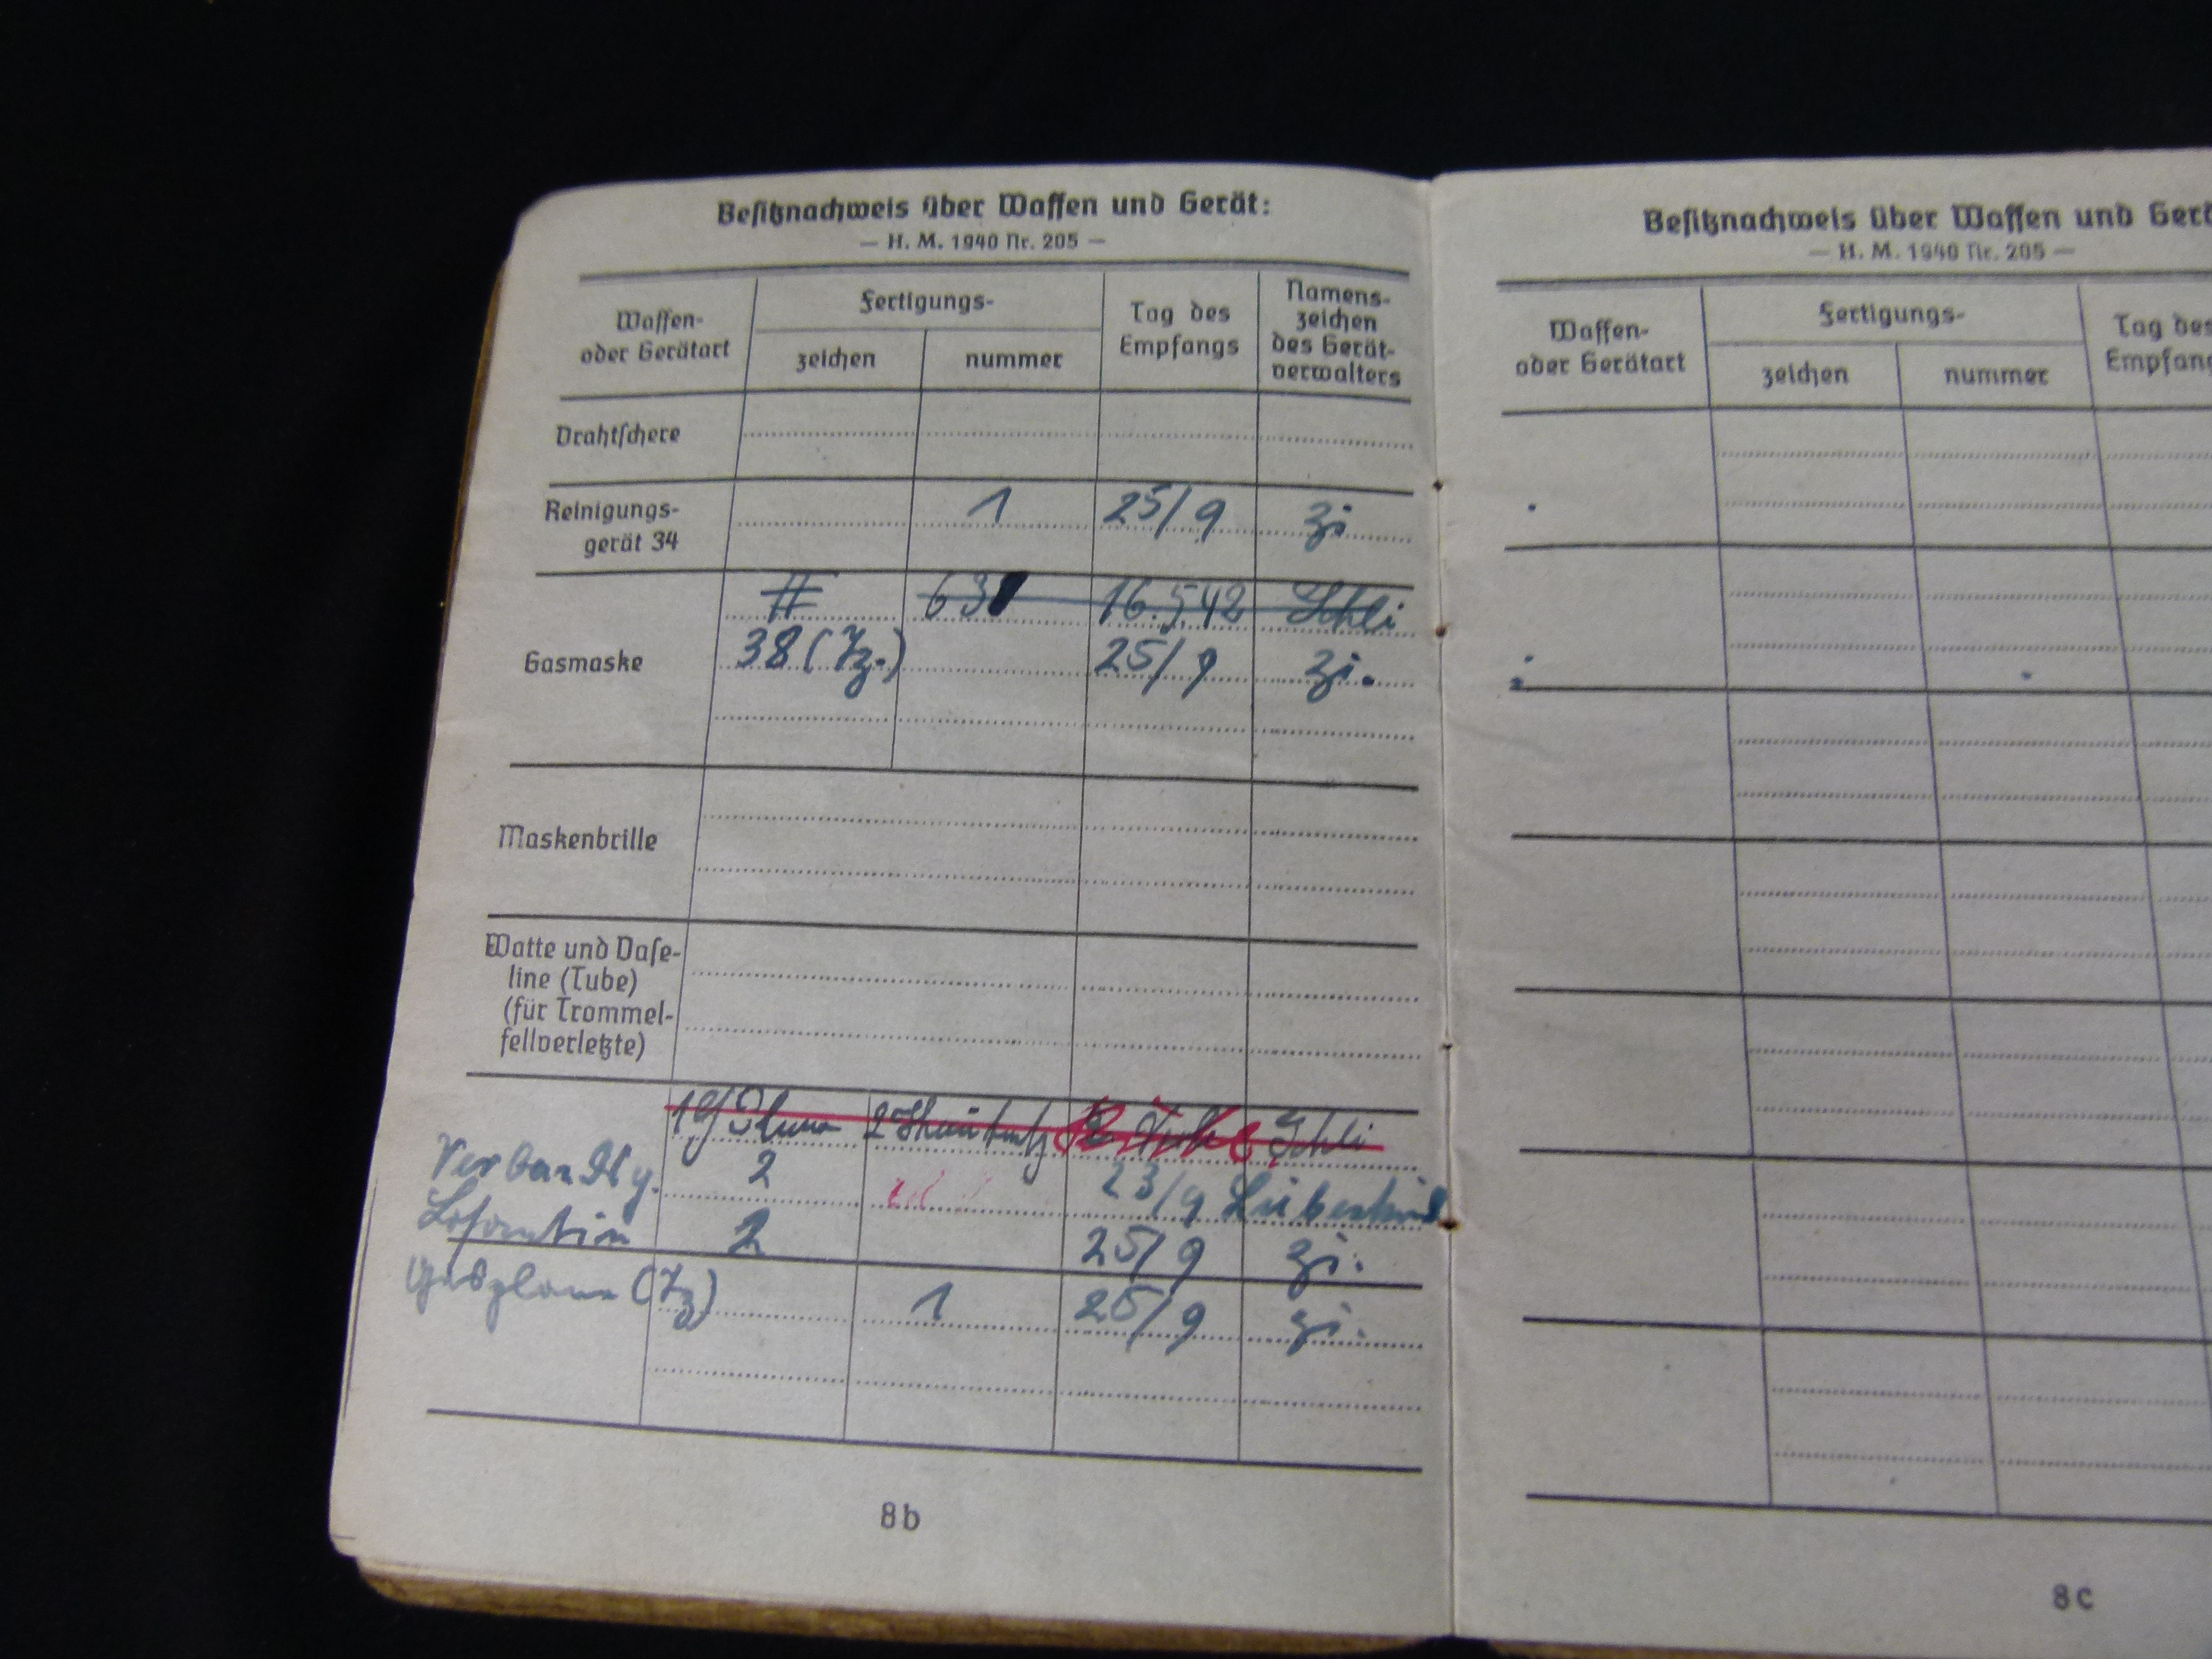 Besitznachweis über Waffen und Gerät:
— H. M. 1940 Nr. 205 —
Waffen-
oder Gerätart
Fertigungs-
zeichen
nummer
Tag des
Empfangs
Namens-
zeichen
des Gerät-
verwalters
Drahtschere
Reinigungs-
gerät 34
1 25/9 Zi
Gasmaske
631 16.5.42 Schli
38 (Tz.) 25/9 Zi.
Maskenbrille
Watte und Vase-
line (Tube)
(für Trommel-
fellverletzte)
Schli
Verbandsg. 2 23/9
Losantin 2 25/9 Zi.
Gasplane (Tz) 1 25/9 Zi.
8b
Besitznachweis über Waffen und Gerä
— H. M. 1940 Nr. 205 —
Waffen-
oder Gerätart
Fertigungs-
zeichen
nummer
Tag des
Empfang
8c